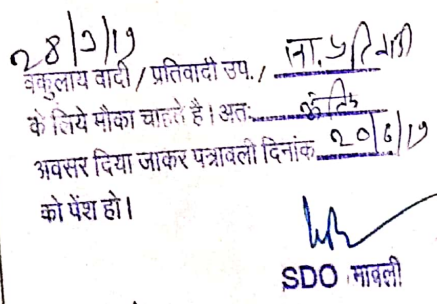 28/3/19
वकुलाय वादी / प्रतिवादी उप. /
के लिये मौका चाहते है। अतः
अवसर दिया जाकर पत्रावली दिनांक 20/6/19
को पेंश हो।
SDO मावली